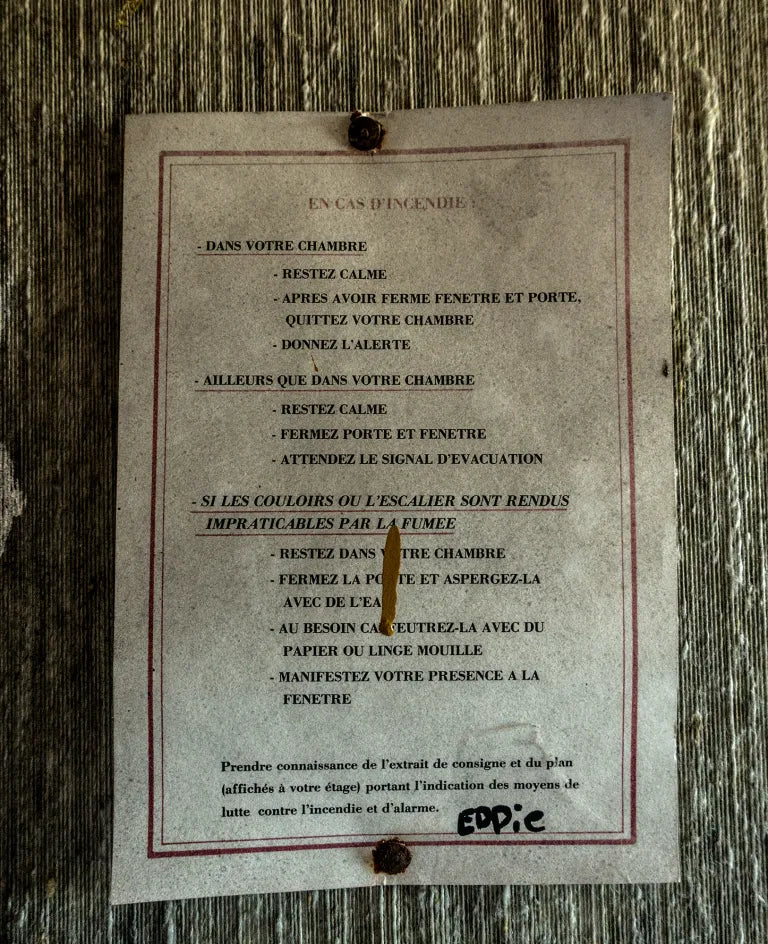 EN CAS D'INCENDIE :
- DANS VOTRE CHAMBRE
- RESTEZ CALME
- APRES AVOIR FERME FENETRE ET PORTE,
QUITTEZ VOTRE CHAMBRE
- DONNEZ L'ALERTE
- AILLEURS QUE DANS VOTRE CHAMBRE
- RESTEZ CALME
- FERMEZ PORTE ET FENETRE
- ATTENDEZ LE SIGNAL D'EVACUATION
- SI LES COULOIRS OU L'ESCALIER SONT RENDUS
IMPRATICABLES PAR LA FUMEE
- RESTEZ DANS VOTRE CHAMBRE
- FERMEZ LA PORTE ET ASPERGEZ-LA
AVEC DE L'EAU
- AU BESOIN CALFEUTREZ-LA AVEC DU
PAPIER OU LINGE MOUILLE
- MANIFESTEZ VOTRE PRESENCE A LA
FENETRE
Prendre connaissance de l'extrait de consigne et du plan
(affichés à votre étage) portant l'indication des moyens de
lutte contre l'incendie et d'alarme.
EDDie